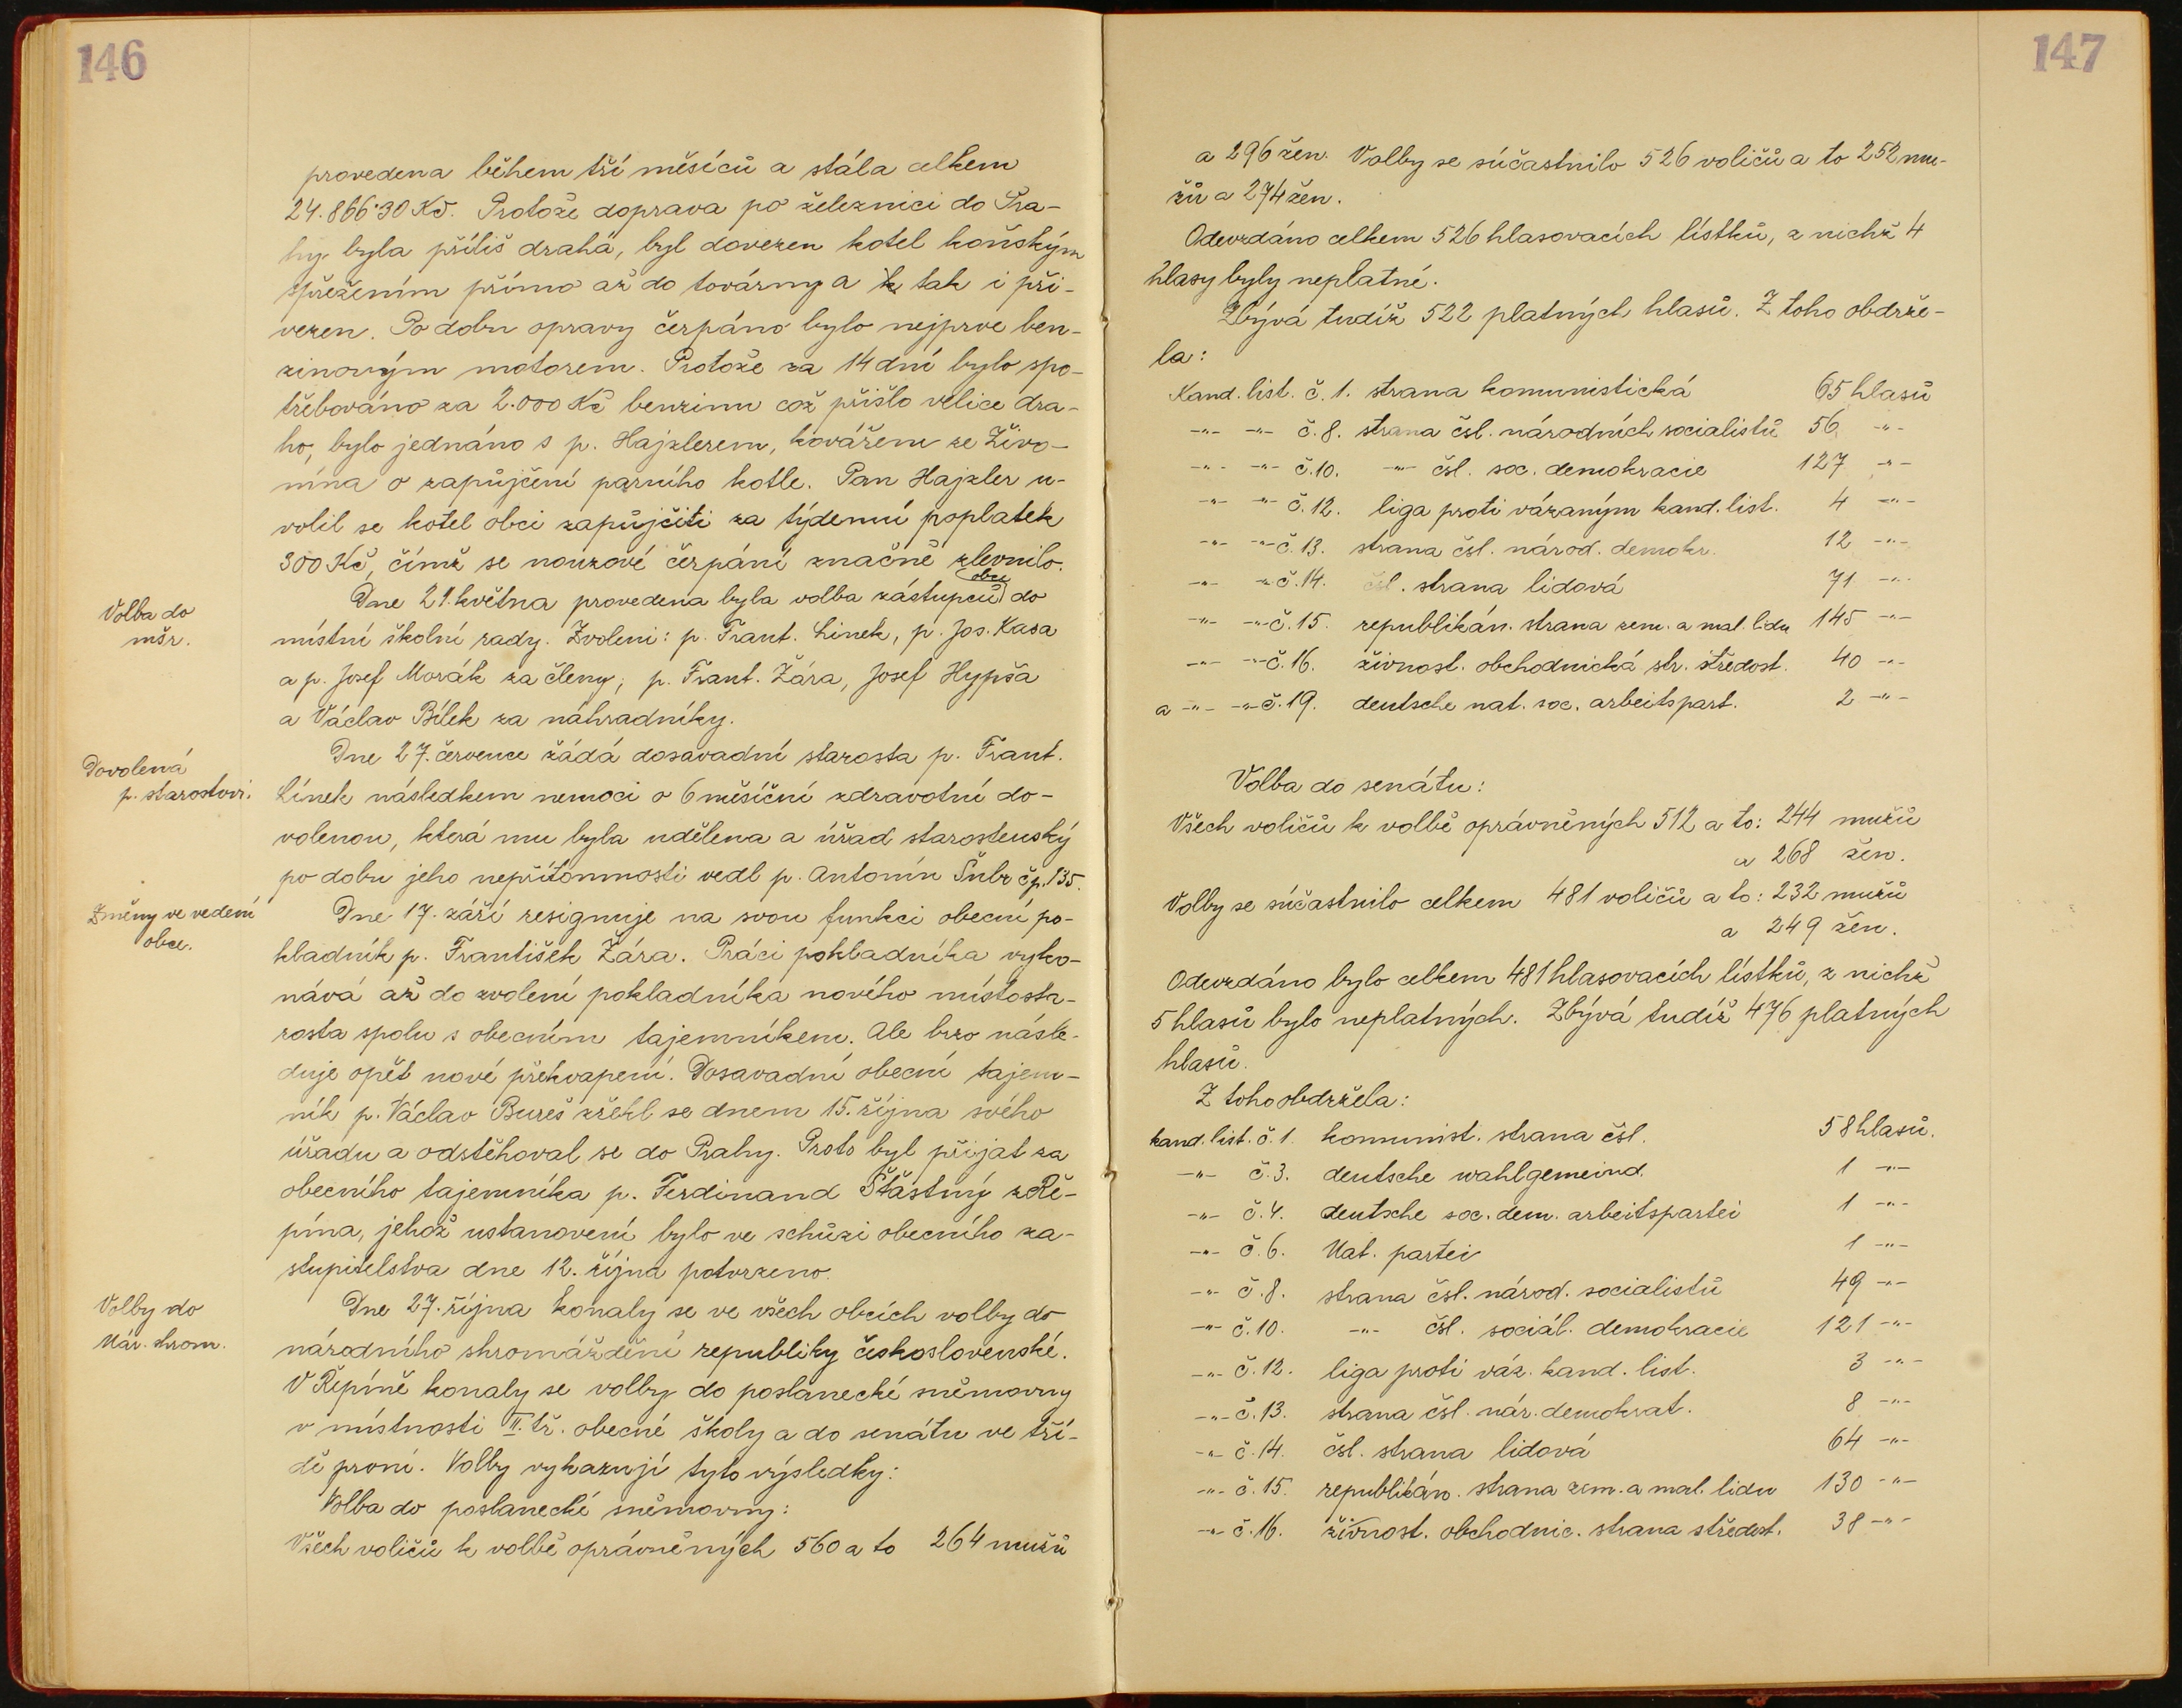 146
provedena během tří měsíců a stála celkem
24.866·30 Kč. Protože doprava po železnici do Pra-
hy byla příliš drahá, byl dovezen kotel koňským
spřežením přímo až do továrny a k tak i při-
vezen. Po dobu opravy čerpáno bylo nejprve ben-
zinovým motorem. Protože za 14 dní bylo spo-
třebováno za 2.000 Kč benzinu což přišlo velice dra-
ho, bylo jednáno s p. Hajzlerem, kovářem ze Živo-
nína o zapůjčení parního kotle. Pan Hajzler u-
volil se kotel obci zapůjčiti za týdenní poplatek
300 Kč, čímž se nouzové čerpání značně zlevnilo.
Volba do
mšr.
Dne 21. května provedena byla volba zástupců obce do
místní školní rady. Zvoleni: p. Frant. Linek, p. Jos. Kasa
a p. Josef Morák za členy, p. Frant. Žára, Josef Hypša
a Václav Bílek za náhradníky.
Dovolená
p. starostovi.
Dne 27. července žádá dosavadní starosta p. Frant.
Línek následkem nemoci o 6 měsíční zdravotní do-
volenou, která mu byla udělena a úřad starostenský
po dobu jeho nepřítomnosti vedl p. Antonín Šubr čp. 135.
Změny ve vedení
obce.
Dne 17. září resignuje na svou funkci obecní po-
kladník p. František Žára. Práci pokladníka vyko-
nává až do zvolení pokladníka nového místosta-
rosta spolu s obecním tajemníkem. Ale brzo násle-
duje opět nové překvapení. Dosavadní obecní tajem-
ník p. Václav Bureš zřekl se dnem 15. října svého
úřadu a odstěhoval se do Prahy. Proto byl přijat za
obecního tajemníka p. Ferdinand Šťastný z Ře-
pína, jehož ustanovení bylo ve schůzi obecního za-
stupitelstva dne 12. října potvrzeno.
Volby do
Nár. shrom.
Dne 27. října konaly se ve všech obcích volby do
národního shromáždění republiky československé.
V Řepíně konaly se volby do poslanecké sněmovny
v místnosti II. tř. obecné školy a do senátu ve tří-
dě první. Volby vykazují tyto výsledky:
Volba do poslanecké sněmovny:
Všech voličů k volbě oprávněných 560 a to 264 mužů
147
a 296 žen. Volby se súčastnilo 526 voličů a to 252 mu-
žů a 274 žen.
Odevzdáno celkem 526 hlasovacích lístků, z nichž 4
hlasy byly neplatné.
Zbývá tudíž 522 platných hlasů. Z toho obdrže-
la:
Kand. list. č. 1. strana komunistická 65 hlasů
-"- -"- č. 8. strana čsl. národních socialistů 56 -"-
-"- -"- č. 10. -"- čsl. soc. demokracie 127 -"-
-"- -"- č. 12. liga proti vázaným kand. list. 4 -"-
-"- -"- č. 13. strana čsl. národ. demokr. 12 -"-
-"- -"- č. 14. čsl. strana lidová 71 -"-
-"- -"- č. 15. republikán. strana zem. a mal. lidu 145 -"-
-"- -"- č. 16. živnost. obchodnická str. středost. 40 -"-
a -"- -"- č. 19. deutsche nat. soc. arbeitspart. 2 -"-
Volba do senátu:
Všech voličů k volbě oprávněných 512 a to: 244 mužů
a 268 žen.
Volby se súčastnilo celkem 481 voličů a to: 232 mužů
a 249 žen.
Odevzdáno bylo celkem 481 hlasovacích lístků, z nichž
5 hlasů bylo neplatných. Zbývá tudíž 476 platných
hlasů.
Z toho obdržela:
kand. list. č. 1. komunist. strana čsl. 58 hlasů.
-"- č. 3. deutsche wahlgemeind. 1 -"-
-"- č. 4. deutsche soc. dem. arbeitspartei 1 -"-
-"- č. 6. Nat. partei 1 -"-
-"- č. 8. strana čsl. národ. socialistů 49 -"-
-"- č. 10. -"- čsl. sociál. demokracie 121 -"-
-"- č. 12. liga proti váz. kand. list. 3 -"-
-"- č. 13. strana čsl. nár. demokrat. 8 -"-
-"- č. 14. čsl. strana lidová 64 -"-
-"- č. 15. republikán. strana zem. a mal. lidu 130 -"-
-"- č. 16. živnost. obchodnic. strana středost. 38 -"-